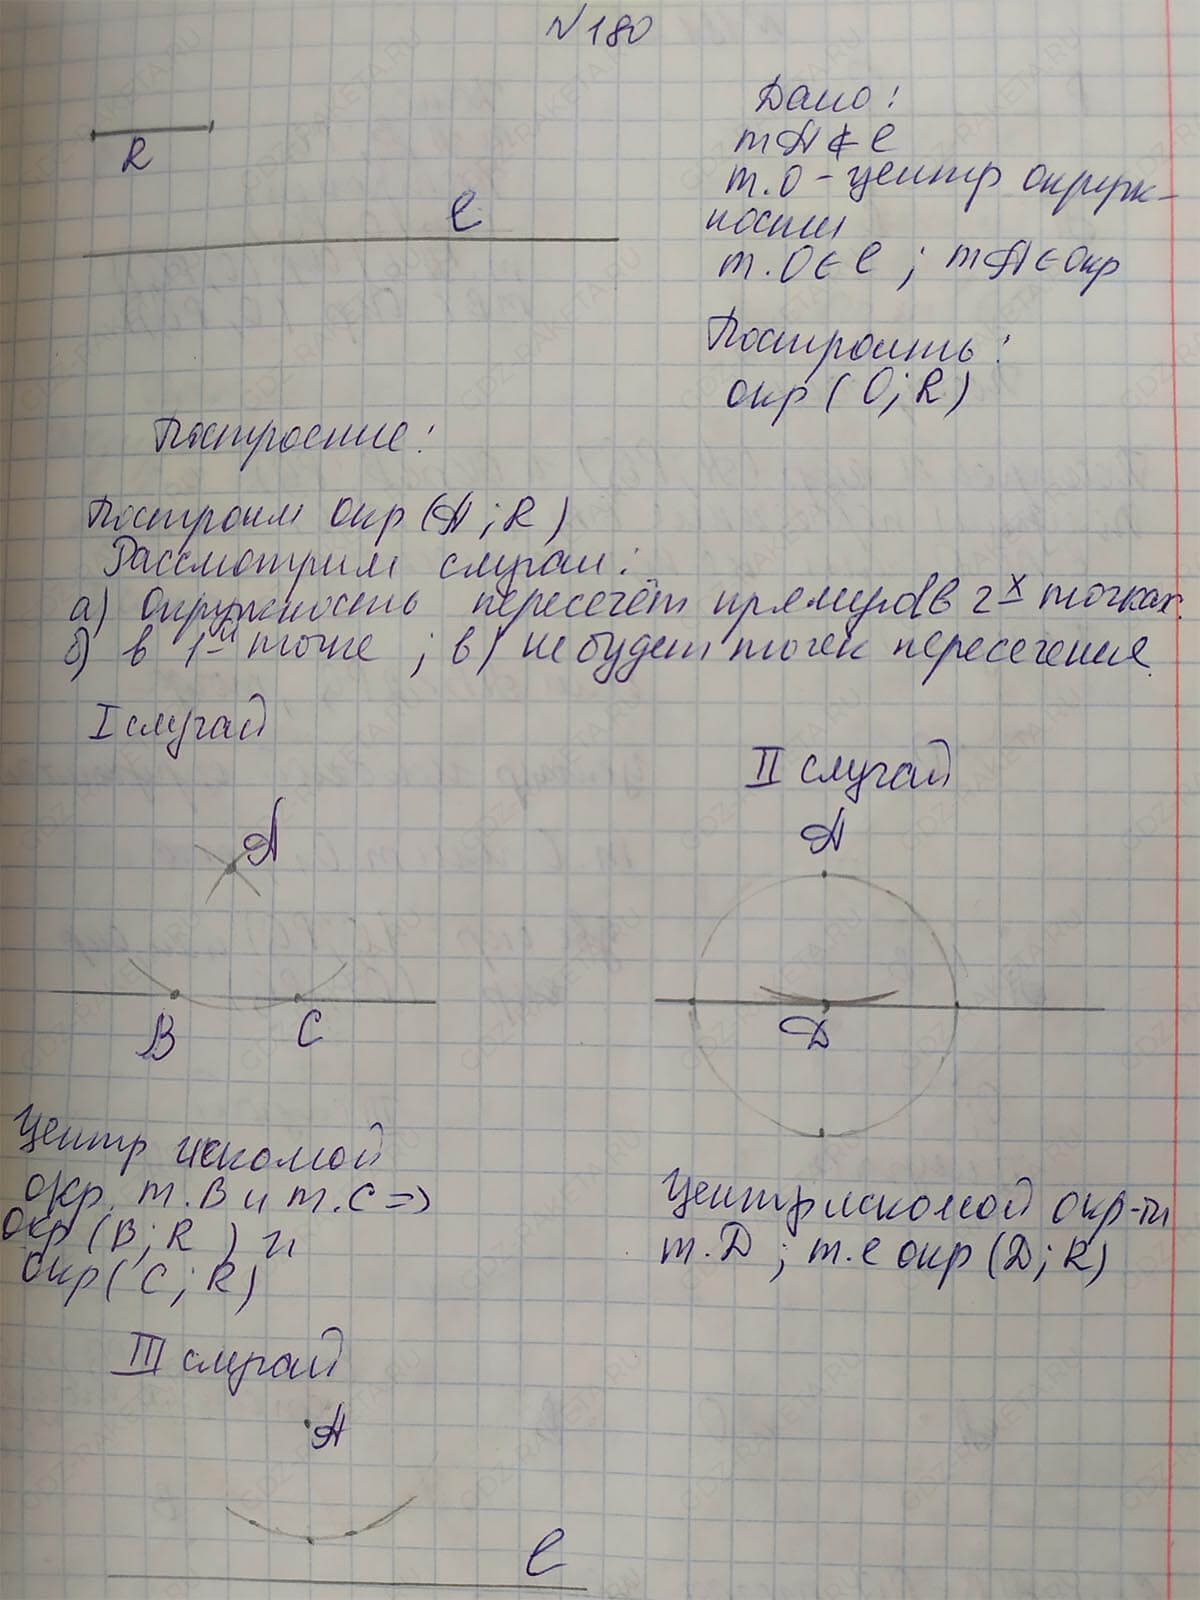 №180
R
l
Дано:
т A ∉ l
т.О - центр окруж-
ности
т.О ∈ l ; т A ∈ окр
Построить:
окр (О; R)
Построение:
Построим окр (A ; R)
Рассмотрим случаи:
а) окружность пересечёт прямую в 2х точках.
б) в 1-й точке ; в) не будет точек пересечения.
I случай
A
B C
Центр искомой
окр. т.В и т.С =>
окр (В; R ) и
окр( С ; R)
II случай
A
D
Центр искомой окр-ти
т.D ; т.е окр (D; R)
III случай
A
l